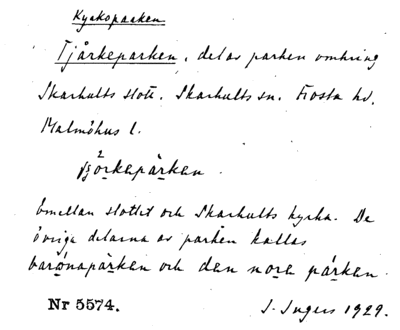 Kyrkoparken
Tjårkeparken, del av parken omkring
Skarhults slott. Skarhults sn. Frosta hd.
Malmöhus l.
emellan slottet och Skarhults kyrka. De
övriga delarna av parken kallas
barónaparken och den nora parken.
Nr 5574.
I. Ingers 1929.